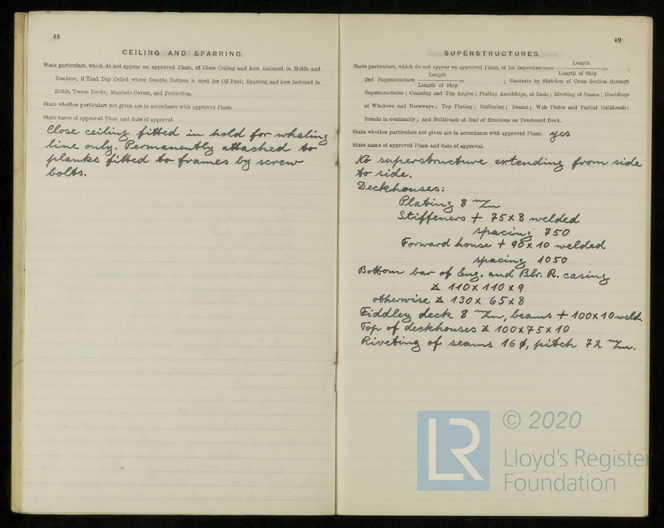 48
CEILING AND SPARRING.
State particulars, which do not appear on approved Plans, of Close Ceiling and how fastened in Holds and
Bunkers; if Tank Top Ceiled where Double Bottom is used for Oil Fuel; Sparring and how fastened in
Holds, Tween Decks; Manhole Covers, and Protection.
State whether particulars not given are in accordance with approved Plans.
State name of approved Plans and date of approval.
Close ceiling fitted in hold for whaling
line only. Permanently attached to
planks fitted to frames by screw
bolts.
49
SUPERSTRUCTURES.
State particulars, which do not appear on approved Plans, of 1st Superstructure Length / Length of Ship = ;
2nd Superstructure Length / Length of Ship = ; Illustrate by Sketches of Cross Section through
Superstructures; Coaming and Top Angles; Plating Amidships, at Ends; Riveting of Seams; Doublings
at Windows and Doorways; Top Plating; Stiffening; Beams; Web Plates and Partial Bulkheads;
Breaks in continuity; and Bulkheads at End of Erections on Freeboard Deck.
State whether particulars not given are in accordance with approved Plans. yes
State name of approved Plans and date of approval.
No superstructure extending from side
to side.
Deckhouses:
Plating 8 m/m
Stiffeners + 75×8 welded
spacing 750
Forward house + 90×10 welded
spacing 1050
Bottom bar of Eng. and Blr. R. casing
110×110×9
otherwise 130×65×8
Fiddley deck 8 m/m, beams + 100×10 weld.
Top of deckhouses 100×75×10
Riveting of seams 16 ø, pitch 72 m/m.
LR © 2020
Lloyd's Register
Foundation